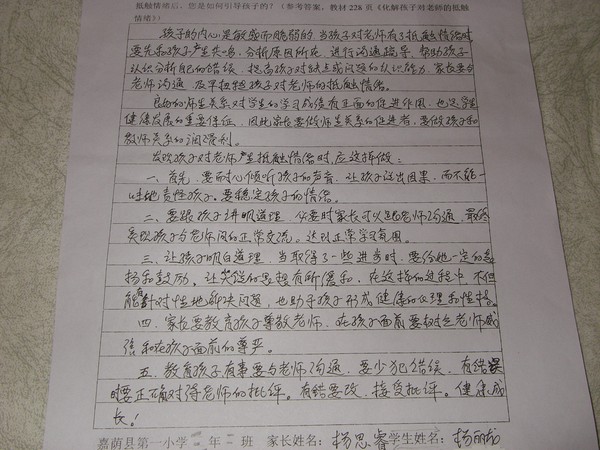 抵触情绪后,您是如何引导孩子的?(参考答案,教材228页《化解孩子对老师的抵触
情绪》)
孩子的内心是敏感而脆弱的,当孩子对老师有了抵触情绪时
要先和孩子产生共鸣,分析原因所在,进行沟通疏导,帮助孩子
认识分析自己的错误,提高孩子对缺点或问题的认识能力,家长要与
老师沟通,及早排除孩子对老师的抵触情绪。
良好的师生关系对学生的学习成绩有正面的促进作用,也是
健康发展的重要保证,因此家长要做师生关系的促进者,要做孩子和
教师关系的润滑剂。
发现孩子对老师产生抵触情绪时,应这样做:
一、首先,要耐心倾听孩子的声音,让孩子说出因果,而不能一
味地责怪孩子,要稳定孩子的情绪。
二、要跟孩子讲明道理,必要时家长可以跟老师沟通,最终
实现孩子与老师间的正常交流,达到正常学习氛围。
三、让孩子明白道理,当取得了一些进步时,要给他一定的表
扬和鼓励,让其的思想有所缓和,在这样的过程中,不但
能有针对性地解决问题,也助于孩子形成健康的心理和性格。
四、家长要教育孩子尊敬老师,在孩子面前要树立老师威
信和在孩子面前的尊严。
五、教育孩子有事要与老师沟通,要少犯错误,有错误
时要正确对待老师的批评。有错要改,接受批评。健康成
长!
嘉荫县第一小学 二 年 二 班 家长姓名:杨思睿 学生姓名:杨丽龙